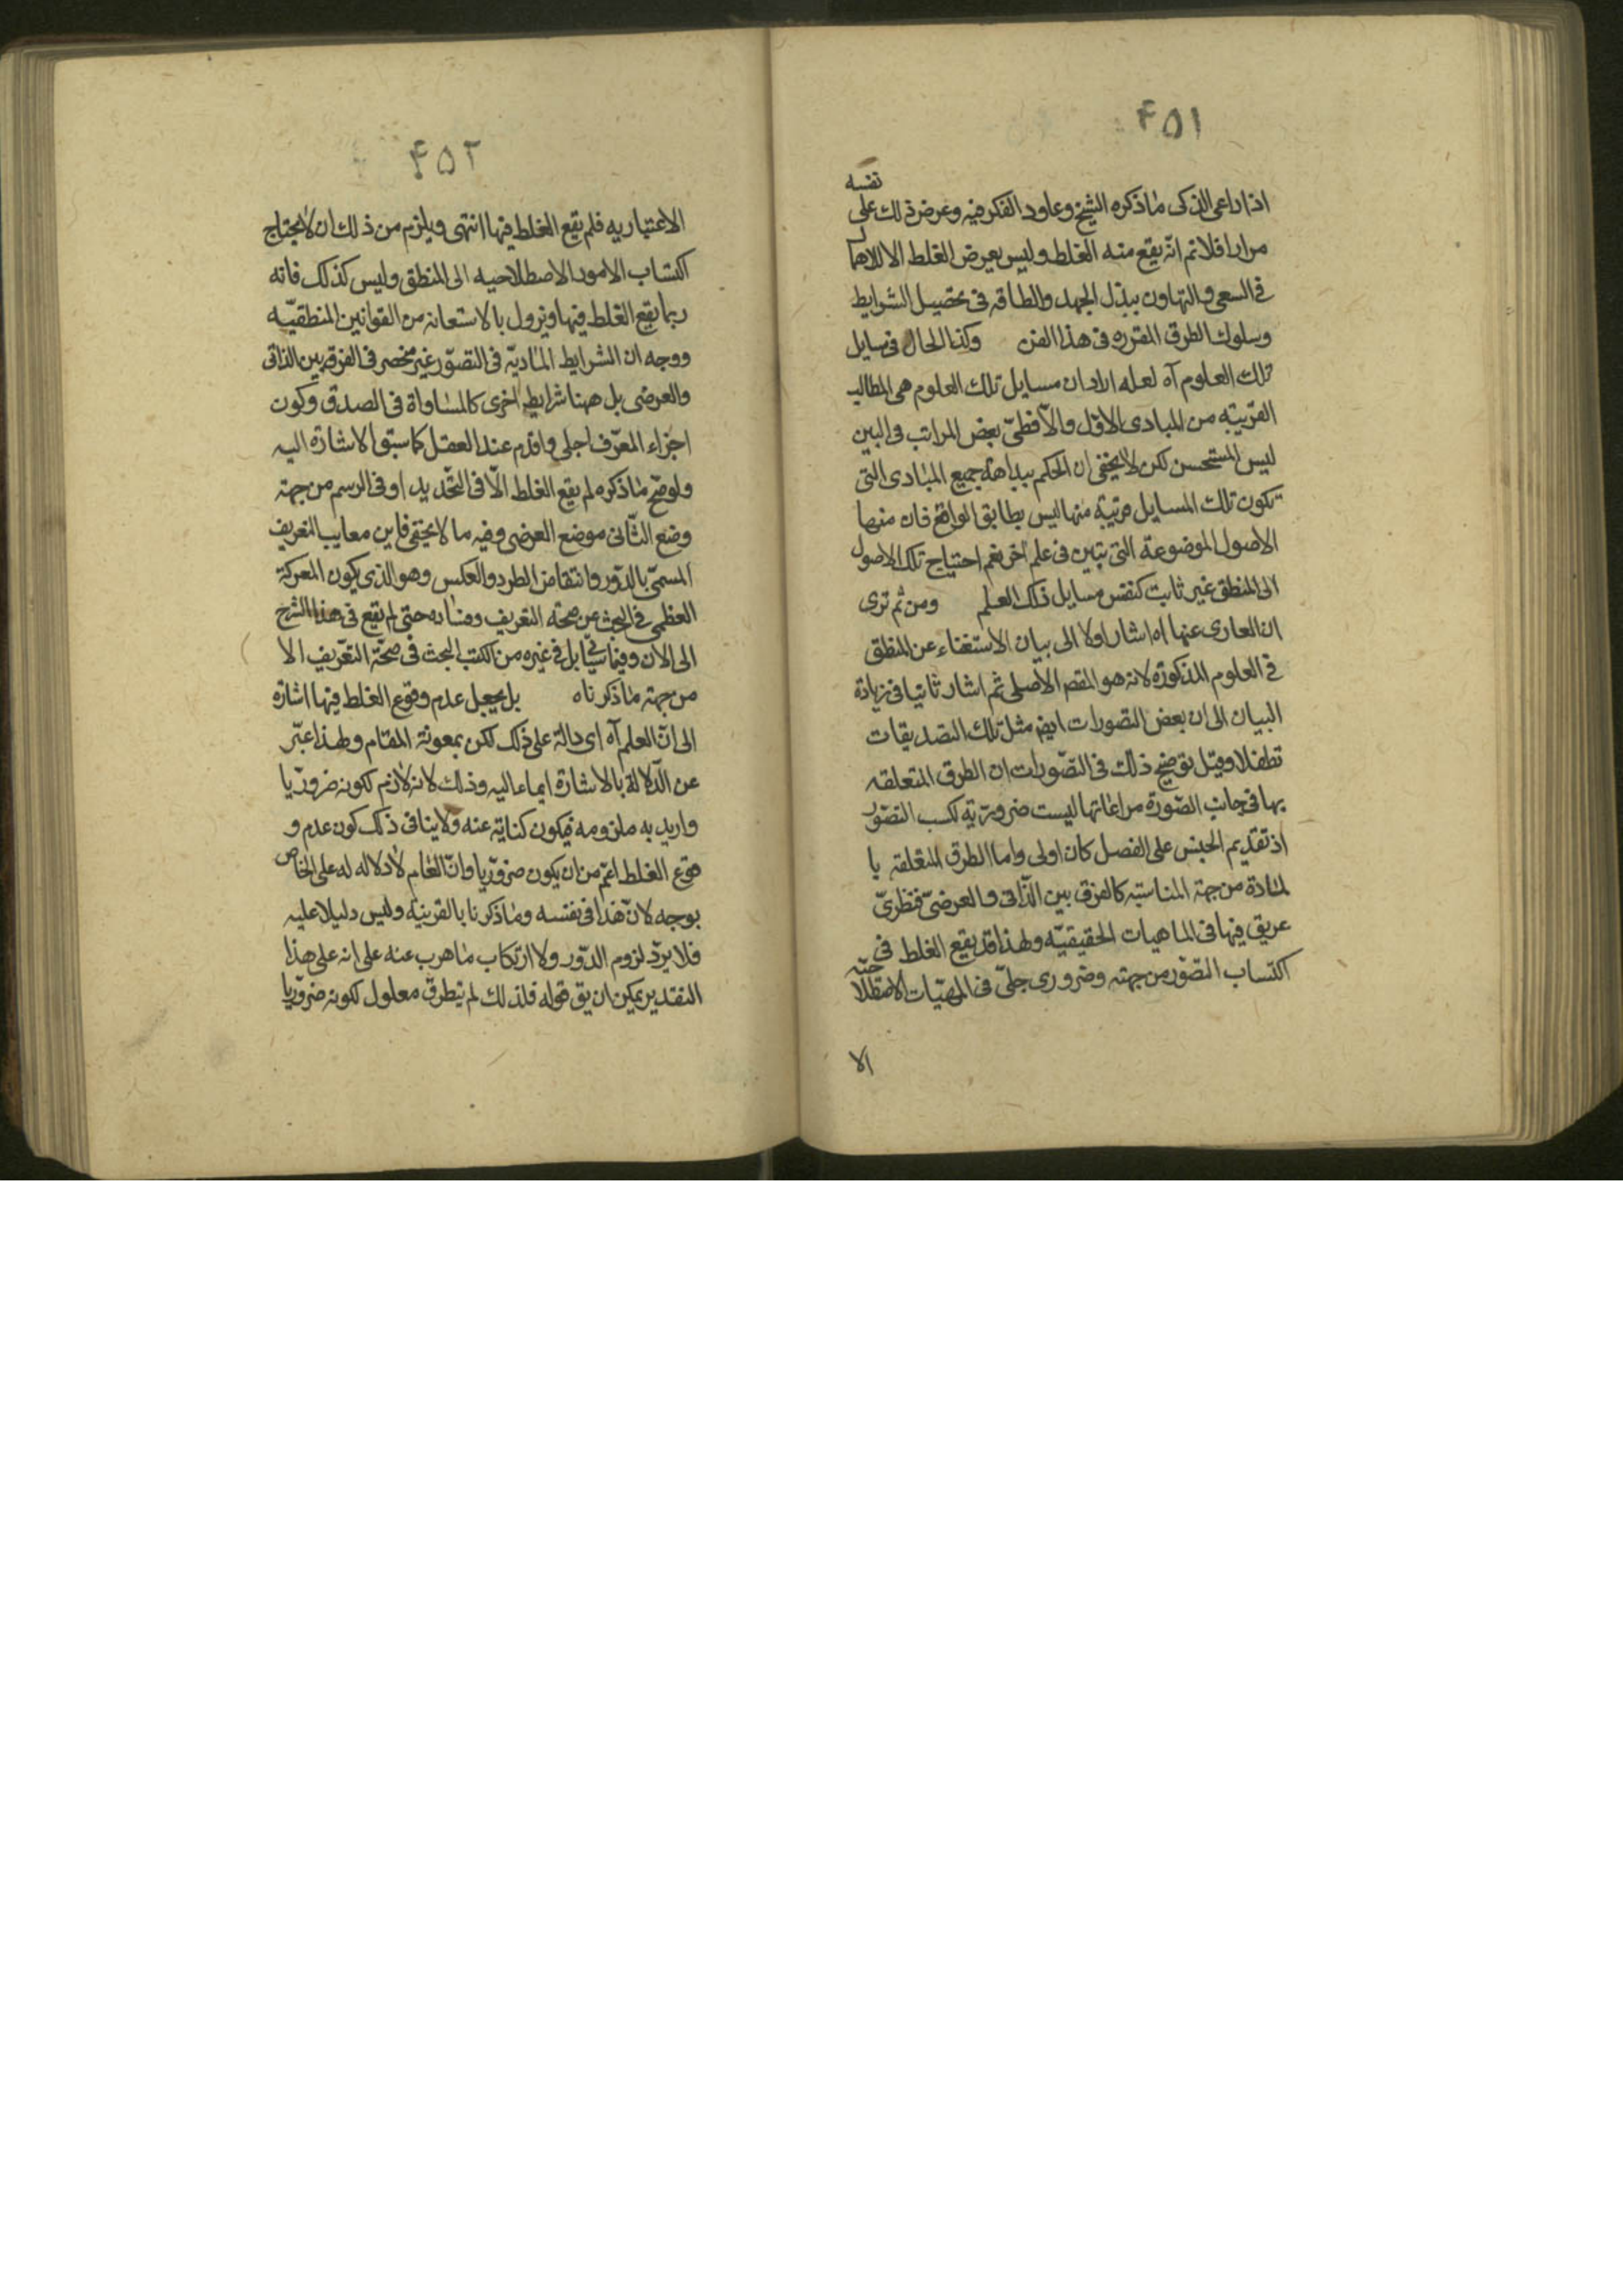 ۴۵۱
نفسه
اذا راعى الذكى ما ذكره الشيخ وعاود الفكر فيه وعرض ذلك على
مرارا فلا نم انه يقع منه الغلط وليس يعرض الغلط الا للاهمال
فى السعى والتهاون ببذل الجهد والطاقه فى تحصيل الشرايط
وسلوك الطرق المقرره فى هذا الفن وكذا الحال فى مسايل
تلك العلوم آه لعله اراد ان مسايل تلك العلوم هى المطالب
القريبة من المبادى الاول والا فطىّ بعض المراتب فى البين
ليس المستحسن لكن لا يخفى ان الحكم ببداهة جميع المبادى التى
تكون تلك المسايل مرتبة منها ليس بطابق الواقع فان منها
الاصول الموضوعة التى تبين فى علم اخر نعم احتياج تلك الاصول
الى المنطق غير ثابت كنفس مسايل ذلك العلم ومن ثم ترى
ان العارى عنها آه اشار اولا الى بيان الاستغناء عن المنطق
فى العلوم المذكورة لانه هو المقصد الاصلى ثم اشار ثانيا فى زيادة
البيان الى ان بعض التصورات ايض مثل تلك التصديقات
تطفلا وقيل توضيح ذلك فى التصورات ان الطرق المتعلقه
بها فى جانب الصورة مراعاتها ليست ضرورية لكسب التصور
اذ تقديم الجنس على الفصل كان اولى واما الطرق المتعلقه با
لمادة من جهة المناسبة كالفرق بين الذاتى والعرضىّ فنظرىّ
عريق فيها فى الماهيات الحقيقيّه ولهذا قد يقع الغلط فى
اكتساب التصوّر من جهته وضرورى جلىّ فى المهيّات الاصطلا
حيّه
الا
۴۵۲
الاعتباريه فلم يقع الغلط فيها انتهى ويلزم من ذلك ان لا يحتاج
اكتساب الامور الاصطلاحيه الى المنطق وليس كذلك فانه
ربما يقع الغلط فيها ويزول بالاستعانه من القوانين المنطقيّه
ووجه ان الشرايط الماديّه فى التصوّر غير منحصر فى الفرق بين الذاتى
والعرضى بل ههنا شرايط اخرى كالمساواة فى الصدق وكون
اجزاء المعرّف اجلى واقدم عند العقل كما سبق الاشارة اليه
ولو صحّ ما ذكره لم يقع الغلط الّا فى التحديد او فى الرسم من جهة
وضع الثّانى موضع العرضى وفيه ما لا يخفى فاين معايب التعريف
المسمّى بالدّور وانتقاض الطرد والعكس وهو الذى يكون المعركة
العظمى فى البحث عن صحّة التعريف وفساده حتى لم يقع فى هذا الشرح
الى الان وفيما سيأتى بل فى غيره من الكتب البحث فى صحّة التعريف الا
من جهة ما ذكرناه بل يجعل عدم وقوع الغلط فيها اشارة
الى انّ العلم آه اى دالة على ذلك لكن بمعونة المقام ولهذا عبّر
عن الدّلالة بالاشارة ايماء اليه وذلك لانه لازم لكونه ضروريّا
واريد به ملزومه فيكون كناية عنه ولا ينافى ذلك كون عدم و
قوع الغلط اعمّ من ان يكون ضروريّا وانّ العام لا دلاله له على الخاص
بوجه لانّ هذا فى نفسه وما ذكرنا بالقرينه وليس دليلا عليه
فلا يردّ لزوم الدّور ولا ارتكاب ما هرب عنه على انه على هذا
التقدير يمكن ان يق قوله فلذلك لم يتطرق معلول لكونه ضروريّا